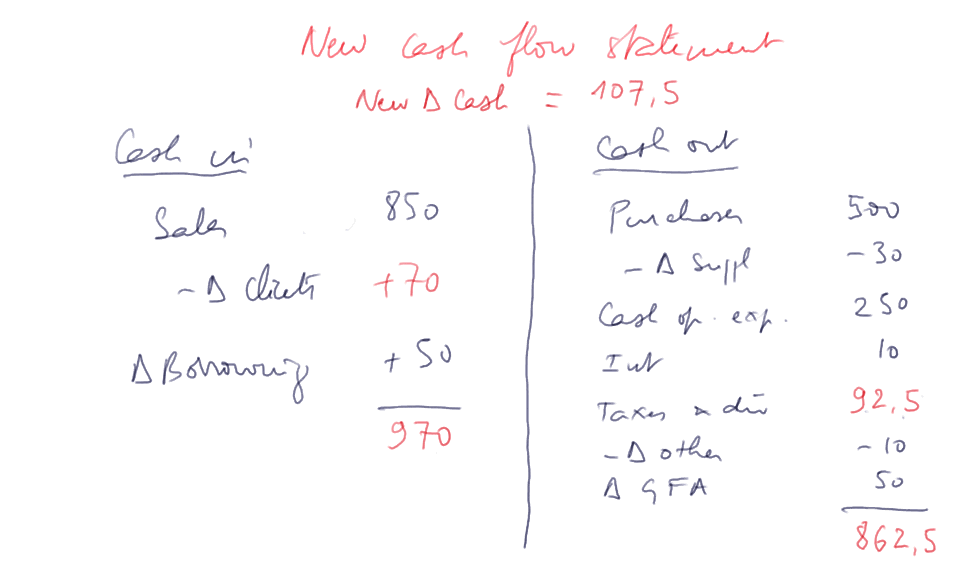 New cash flow statement
New Δ Cash = 107,5
Cash in
Sales 850
- Δ clients +70
Δ Borrowing + 50
970
Cash out
Purchases 500
- Δ Suppl - 30
Cash op. exp. 250
Int 10
Taxes & div 92,5
- Δ other - 10
Δ GFA 50
862,5